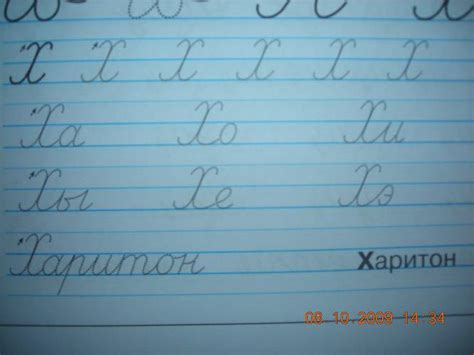 Х Х Х Х Х Х
Ха Хо Хи
Хы Хе Хэ
Харитон Харитон
08 10 2009 14:34